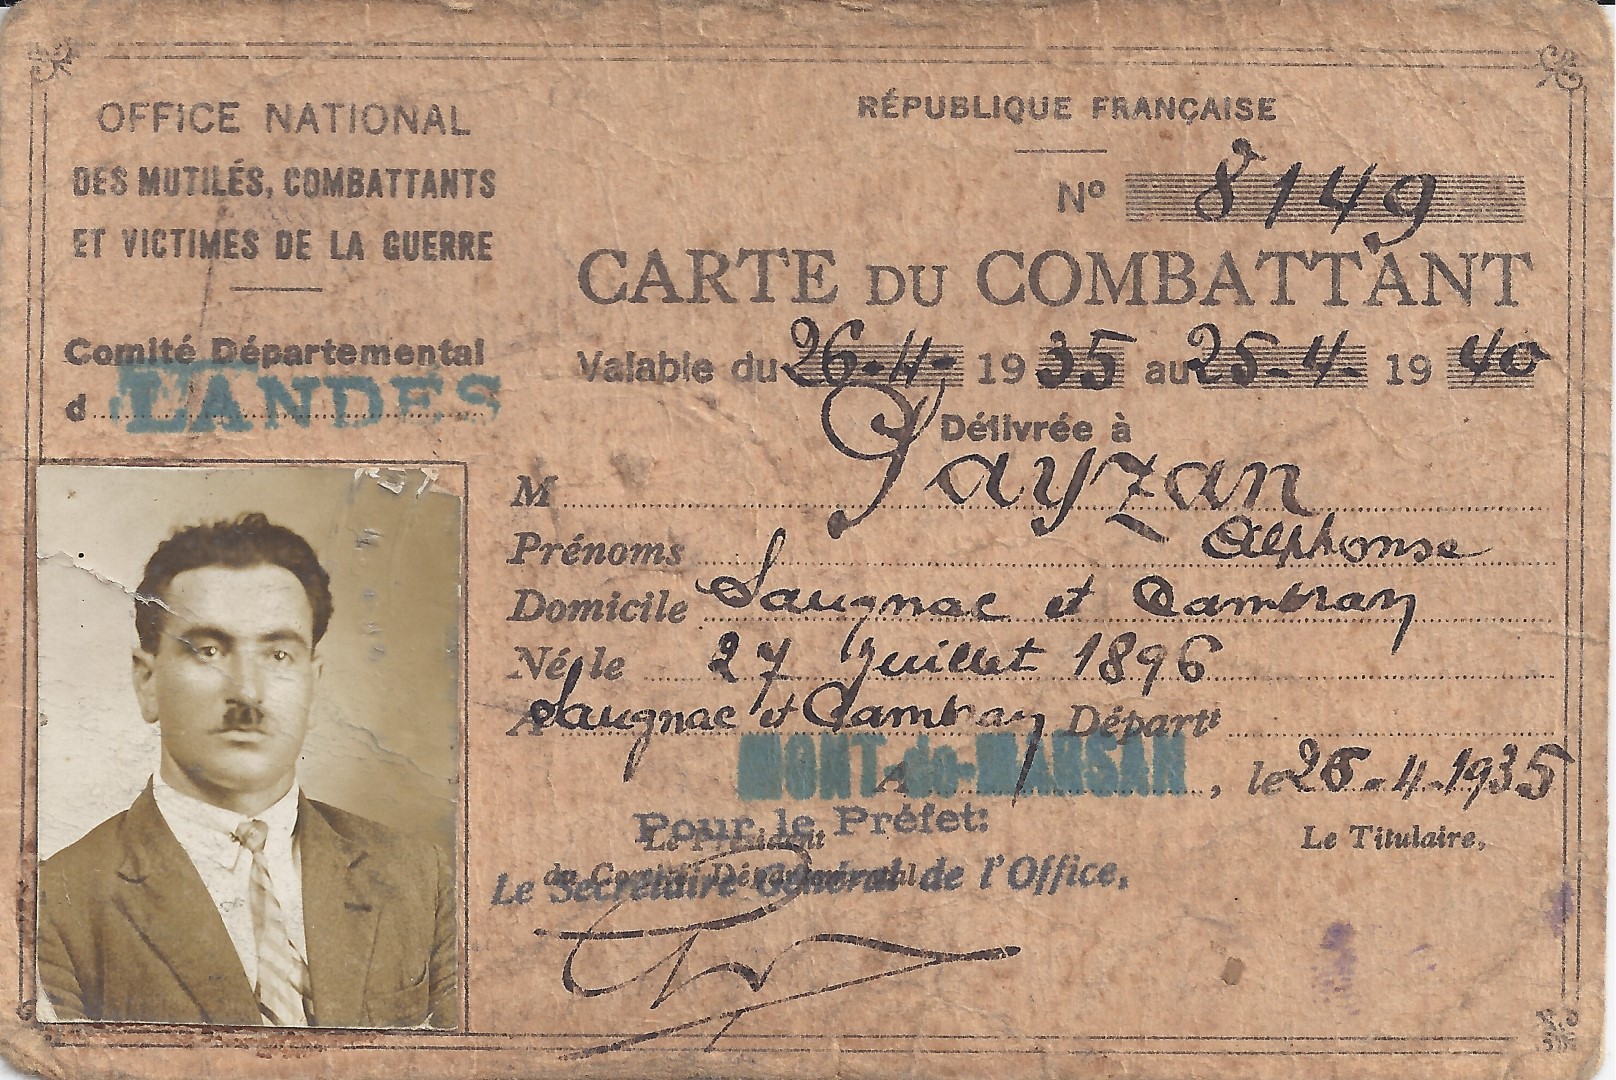 OFFICE NATIONAL
DES MUTILÉS, COMBATTANTS
ET VICTIMES DE LA GUERRE
Comité Départemental
d LANDES
RÉPUBLIQUE FRANÇAISE
Nº 8149
CARTE DU COMBATTANT
Valable du 26-4- 1935 au 25-4- 1940
Délivrée à
M Payzan
Prénoms Alphonse
Domicile Saugnac et Cambran
Né le 27 Juillet 1896
A Saugnac et Cambran Départt
A MONT-de-MARSAN, le 26-4-1935
Pour le Préfet:
Le Président
du Comité Départemental
Le Secrétaire Général de l'Office,
Le Titulaire,